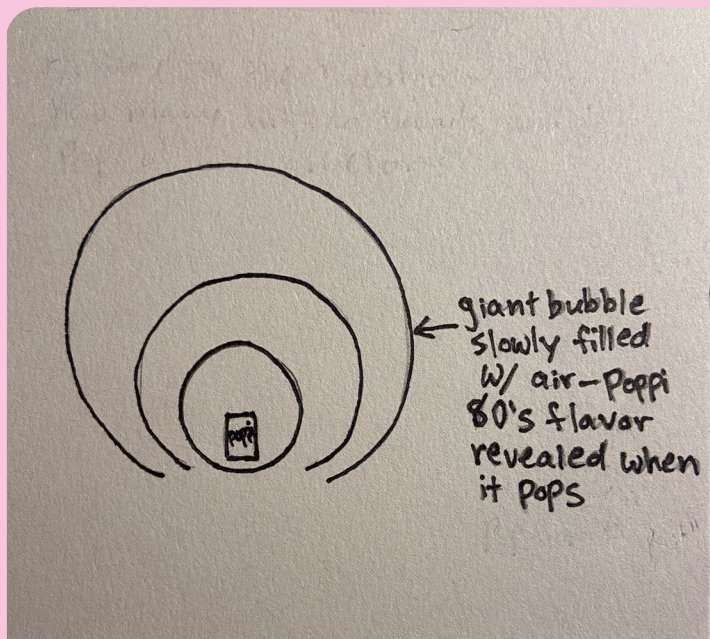 poppi
giant bubble
slowly filled
w/ air-Poppi
80's flavor
revealed when
it pops